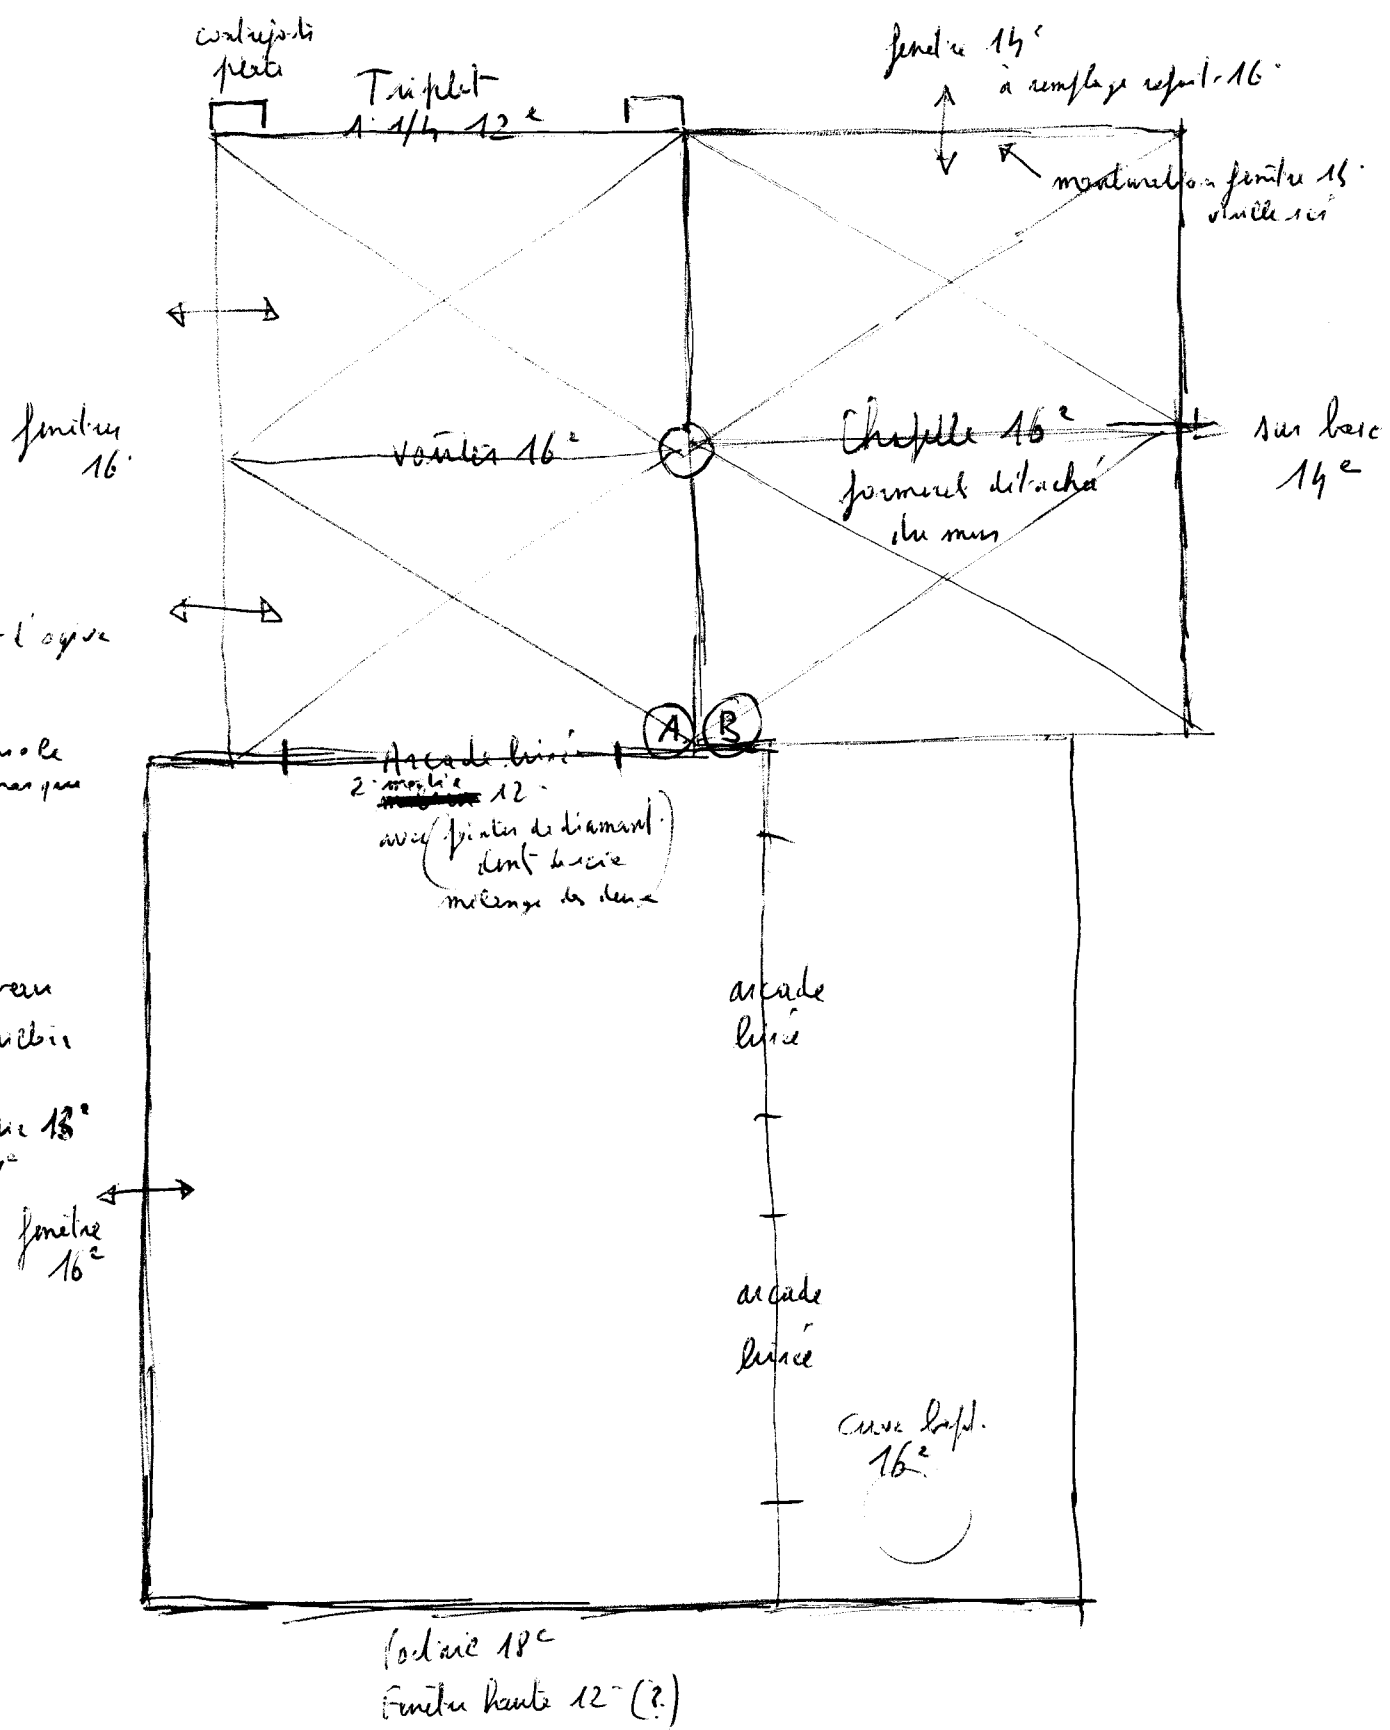 contreforts
plats
Triplet
1° 1/4 12e
fenêtre 14e
à remplage refait 16e
mouluration fenêtre 15e
fenêtres
16e
voûtes 16e
Chapelle 16e
formerets détachés
du mur
sur base
14e
l'ogive
A B
Arcade brisée
2e moitié 12e
avec (pointes de diamant
dent de scie
mélange des deux)
arcade
brisée
fenêtre
16e
arcade
brisée
cuve bapt.
16e
Portail 18e
Fenêtre haute 12e (?)